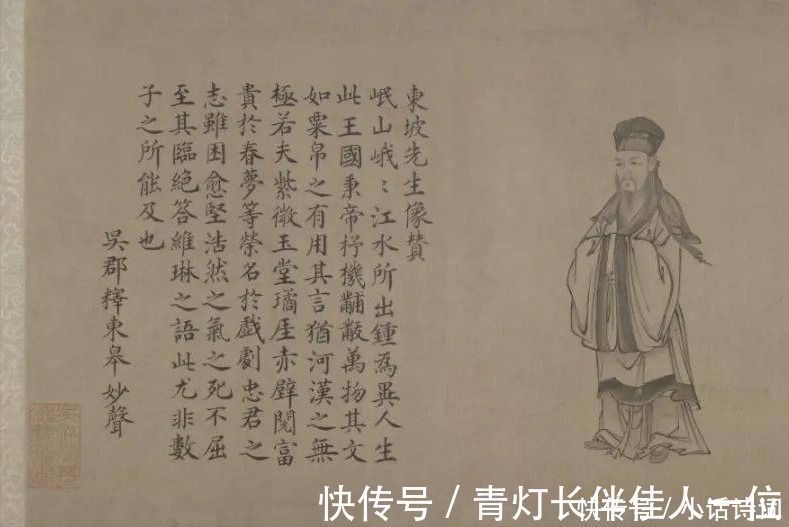 東坡先生像賛
岷山峨〻江水所出鍾為異人生
此王國秉帝杼機黼黻萬物其文
如粟帛之有用其言猶河漢之無
極若夫紫微玉堂璚厓赤壁閱富
貴於春夢等榮名於戲劇忠君之
志雖困愈堅浩然之氣之死不屈
至其臨絕答維琳之語此尤非數
子之所能及也
吳郡釋東皋妙聲
快传号 / 青灯长伴佳人一位
快传号 / 小话诗词